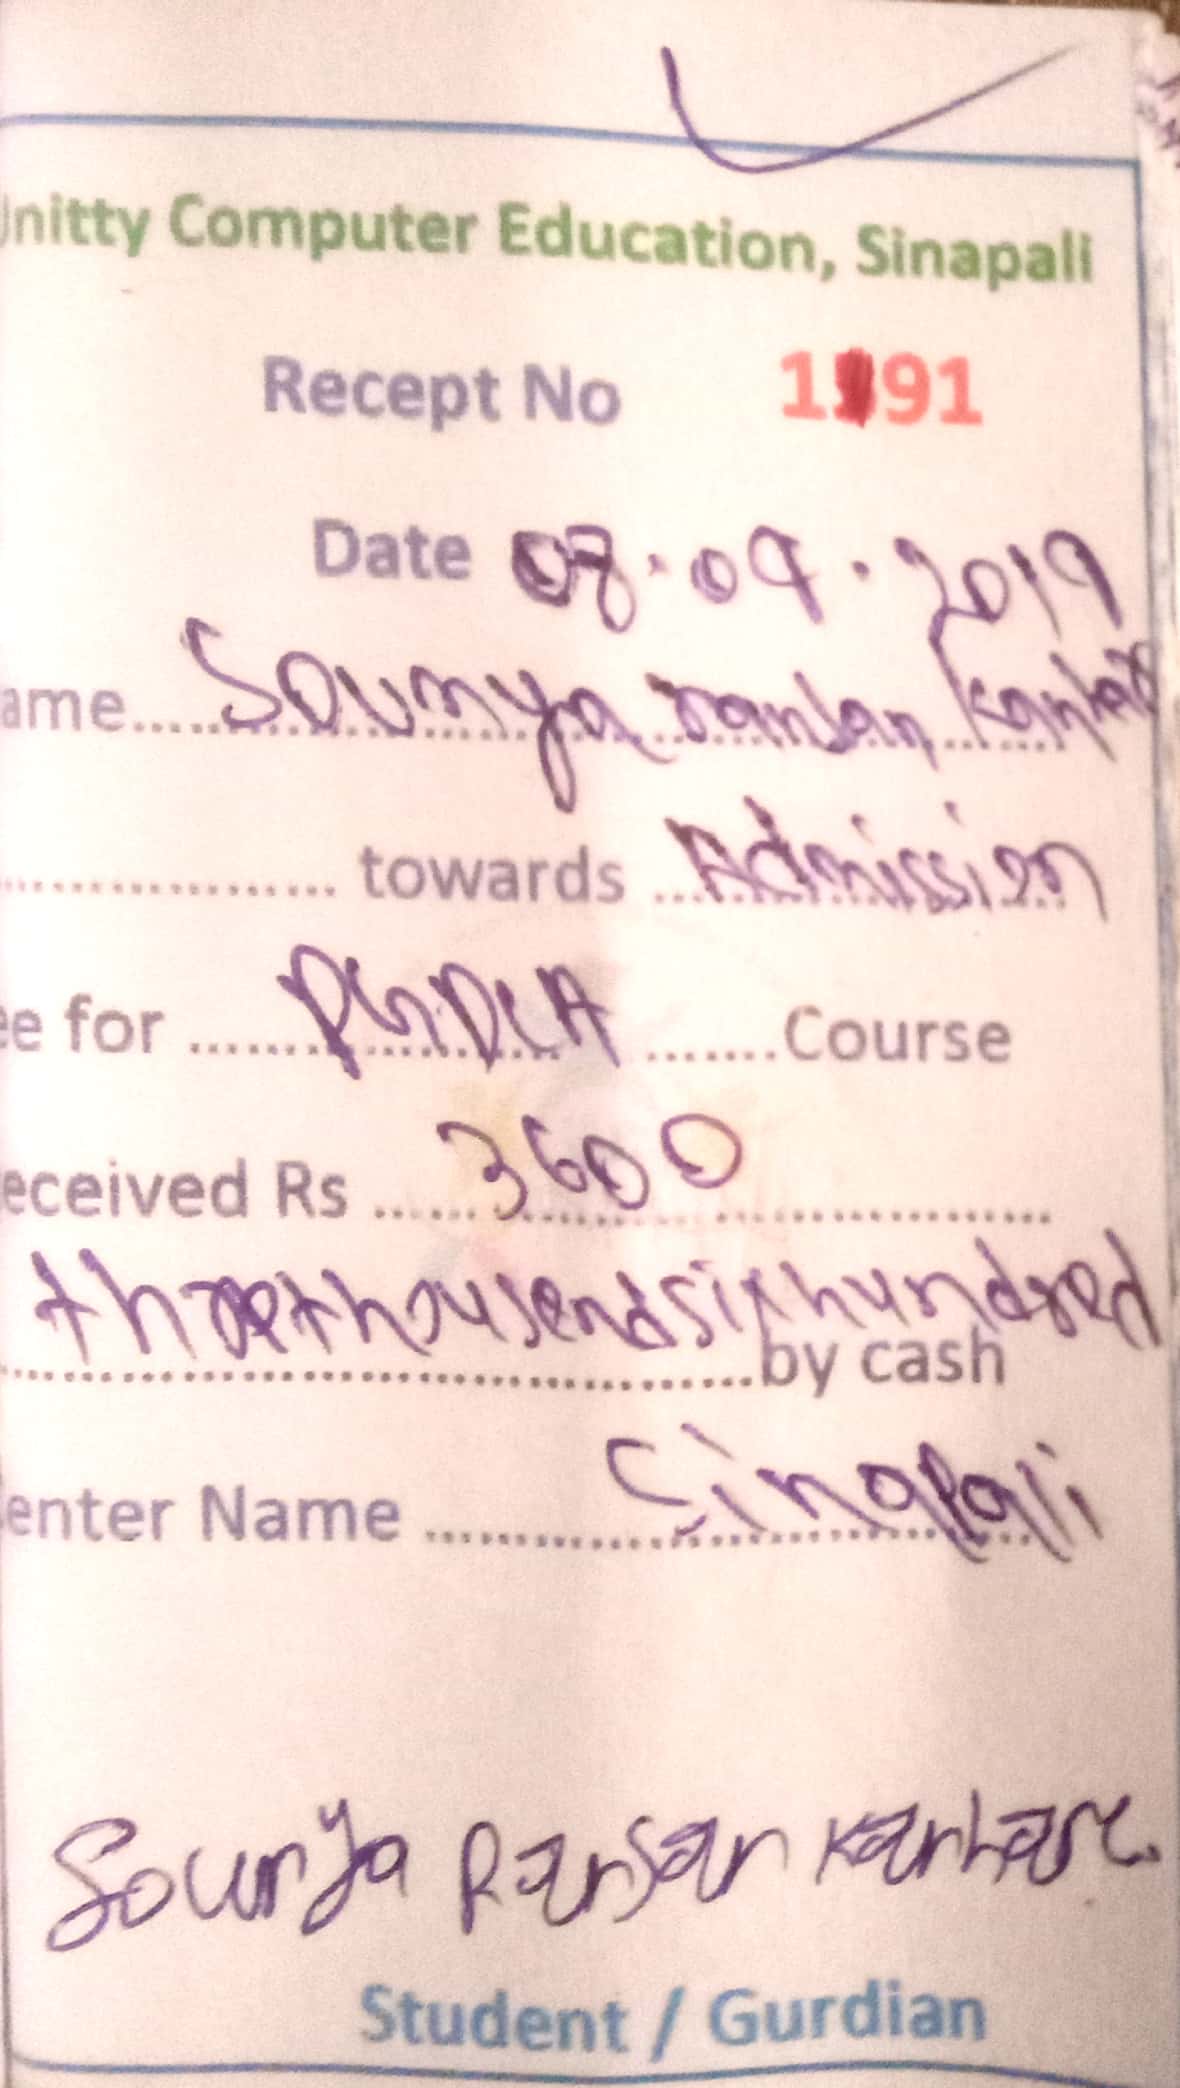 Unitty Computer Education, Sinapali
Recept No 1191
Date 08.09.2019
ame Soumya ranjan
towards Admission
ee for PGDCA Course
eceived Rs 3600
threethousendsixhundred
by cash
enter Name Sinapali
Soumya Ranjan
Student / Gurdian